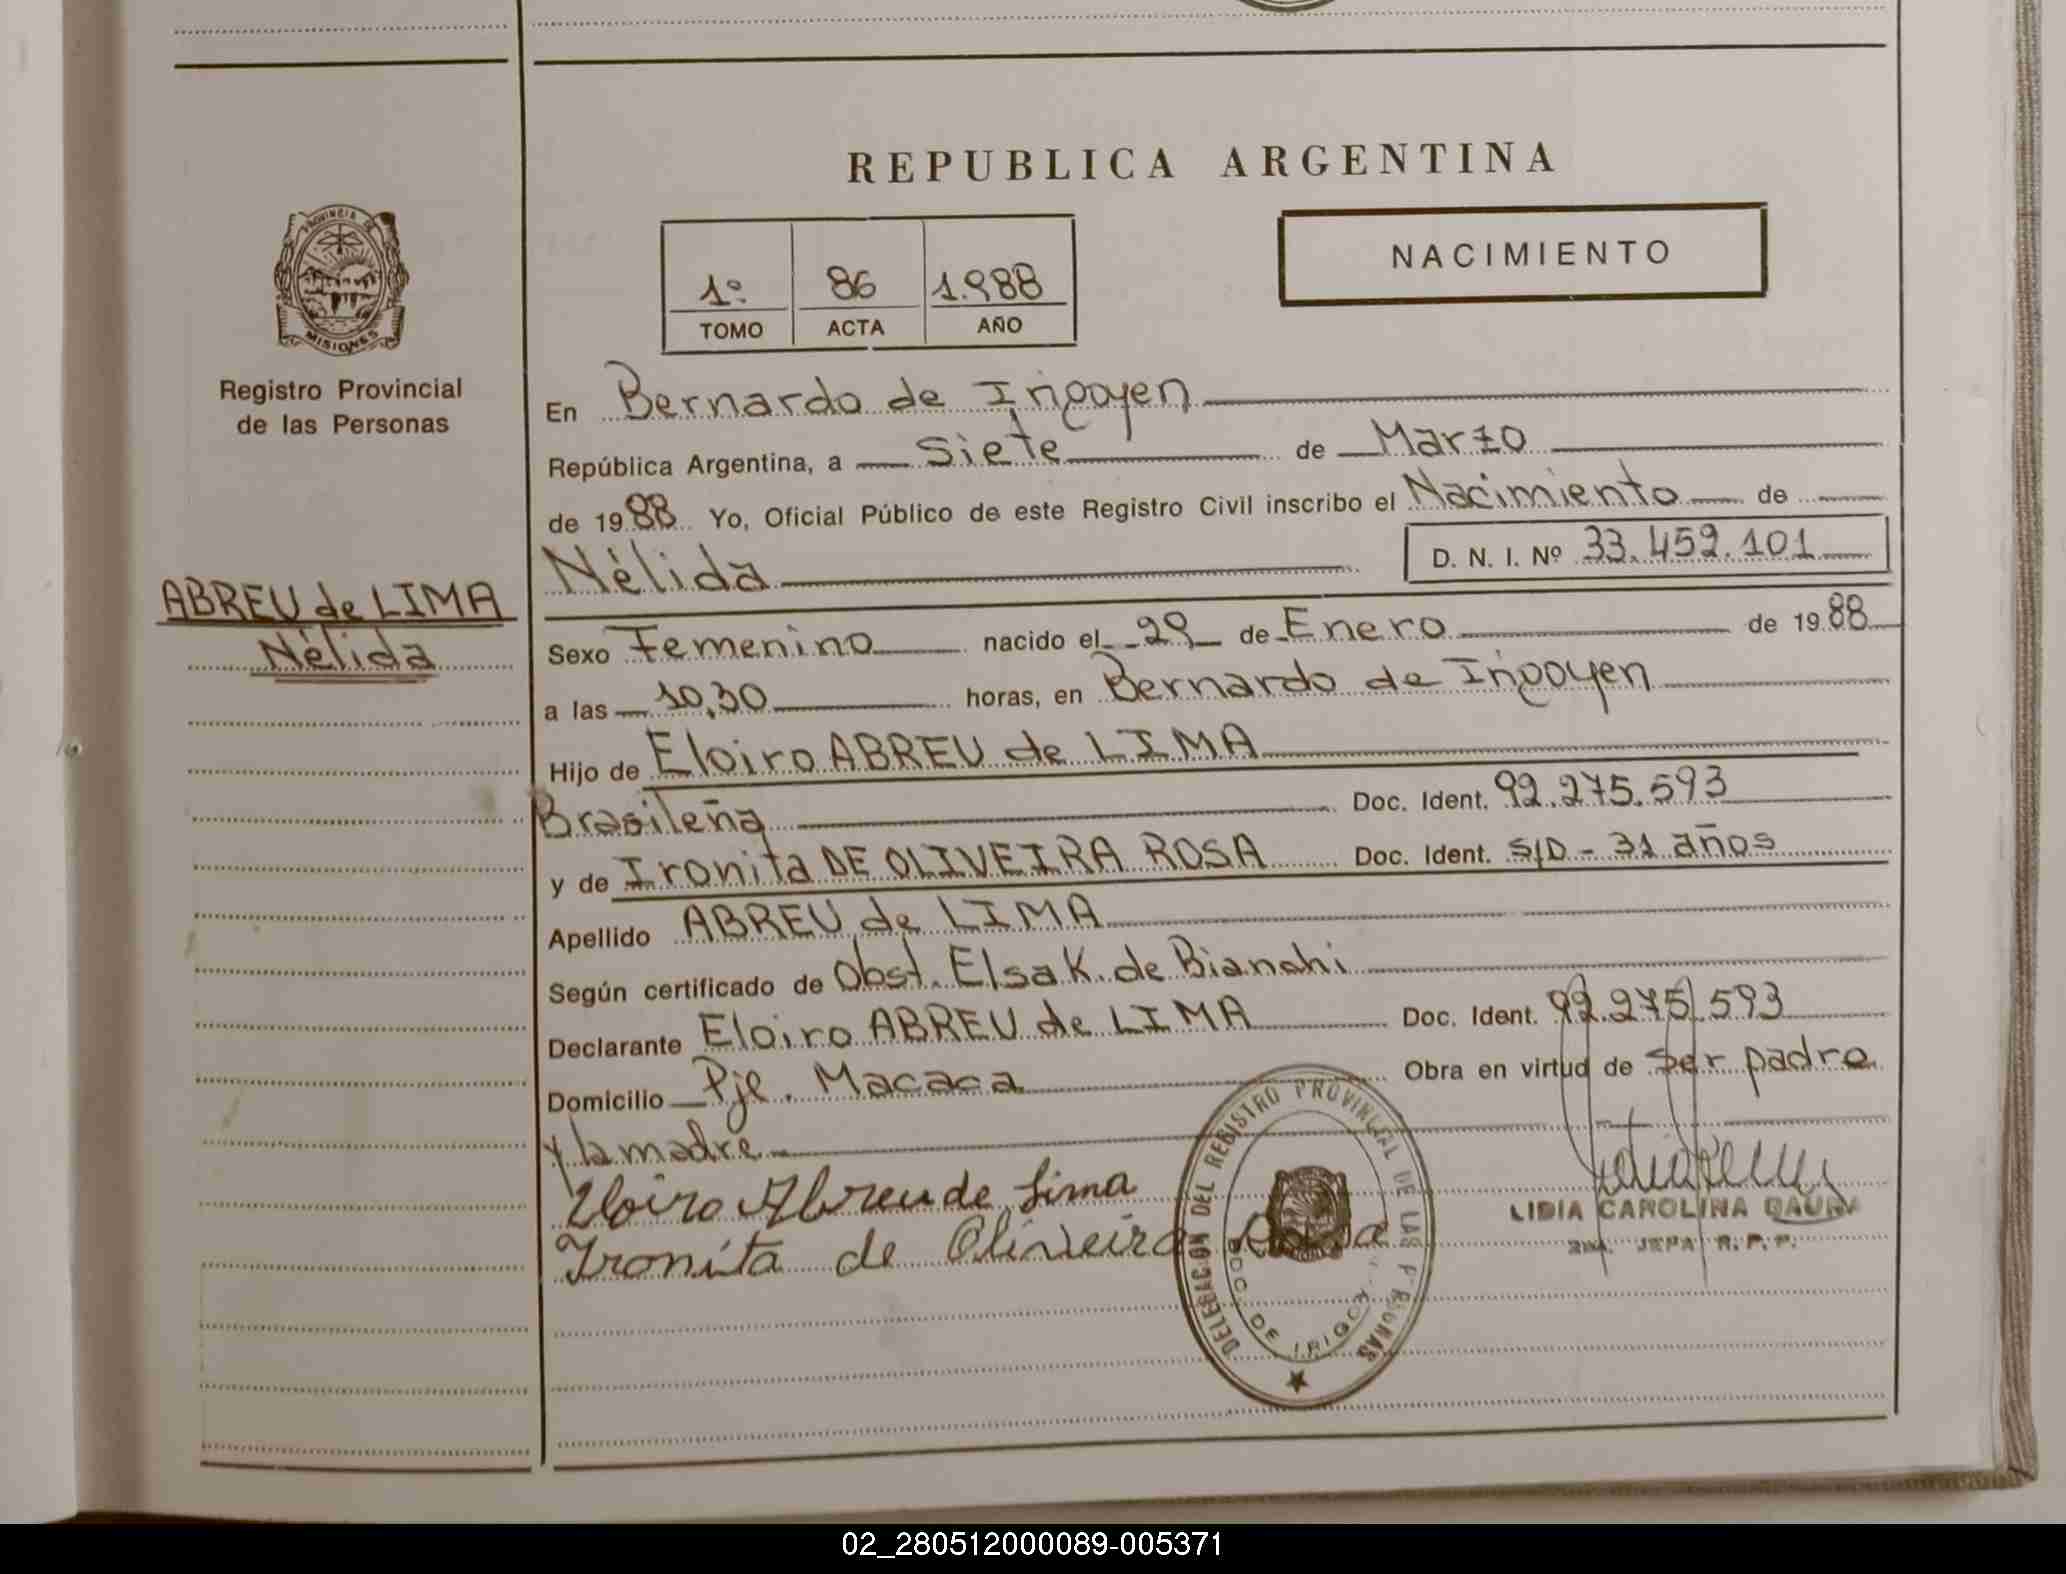 REPUBLICA ARGENTINA
PROVINCIA DE
MISIONES
Registro Provincial
de las Personas
ABREU de LIMA
Nélida
NACIMIENTO
1º 86 1.988
TOMO ACTA AÑO
En Bernardo de Irigoyen
República Argentina, a Siete de Marzo
de 1988 Yo, Oficial Público de este Registro Civil inscribo el Nacimiento de
Nélida D. N. I. Nº 33.459.101
Sexo Femenino nacido el 29 de Enero de 1988
a las 10,30 horas, en Bernardo de Irigoyen
Hijo de Eloiro ABREU de LIMA
Brasileña Doc. Ident. 92.275.593
y de Ironita DE OLIVEIRA ROSA Doc. Ident. S/D - 31 años
Apellido ABREU de LIMA
Según certificado de Obst. Elsa K. de Bianchi
Declarante Eloiro ABREU de LIMA Doc. Ident. 92.275.593
Domicilio Pje. Macaca Obra en virtud de ser padre
y la madre
Eloiro Abreu de Lima
Ironita de Oliveira Rosa
DELEGACION DEL REGISTRO PROVINCIAL DE LAS PERSONAS
BDO. DE IRIGOYEN
LIDIA CAROLINA
JEFA R. P. P.
02_280512000089-005371